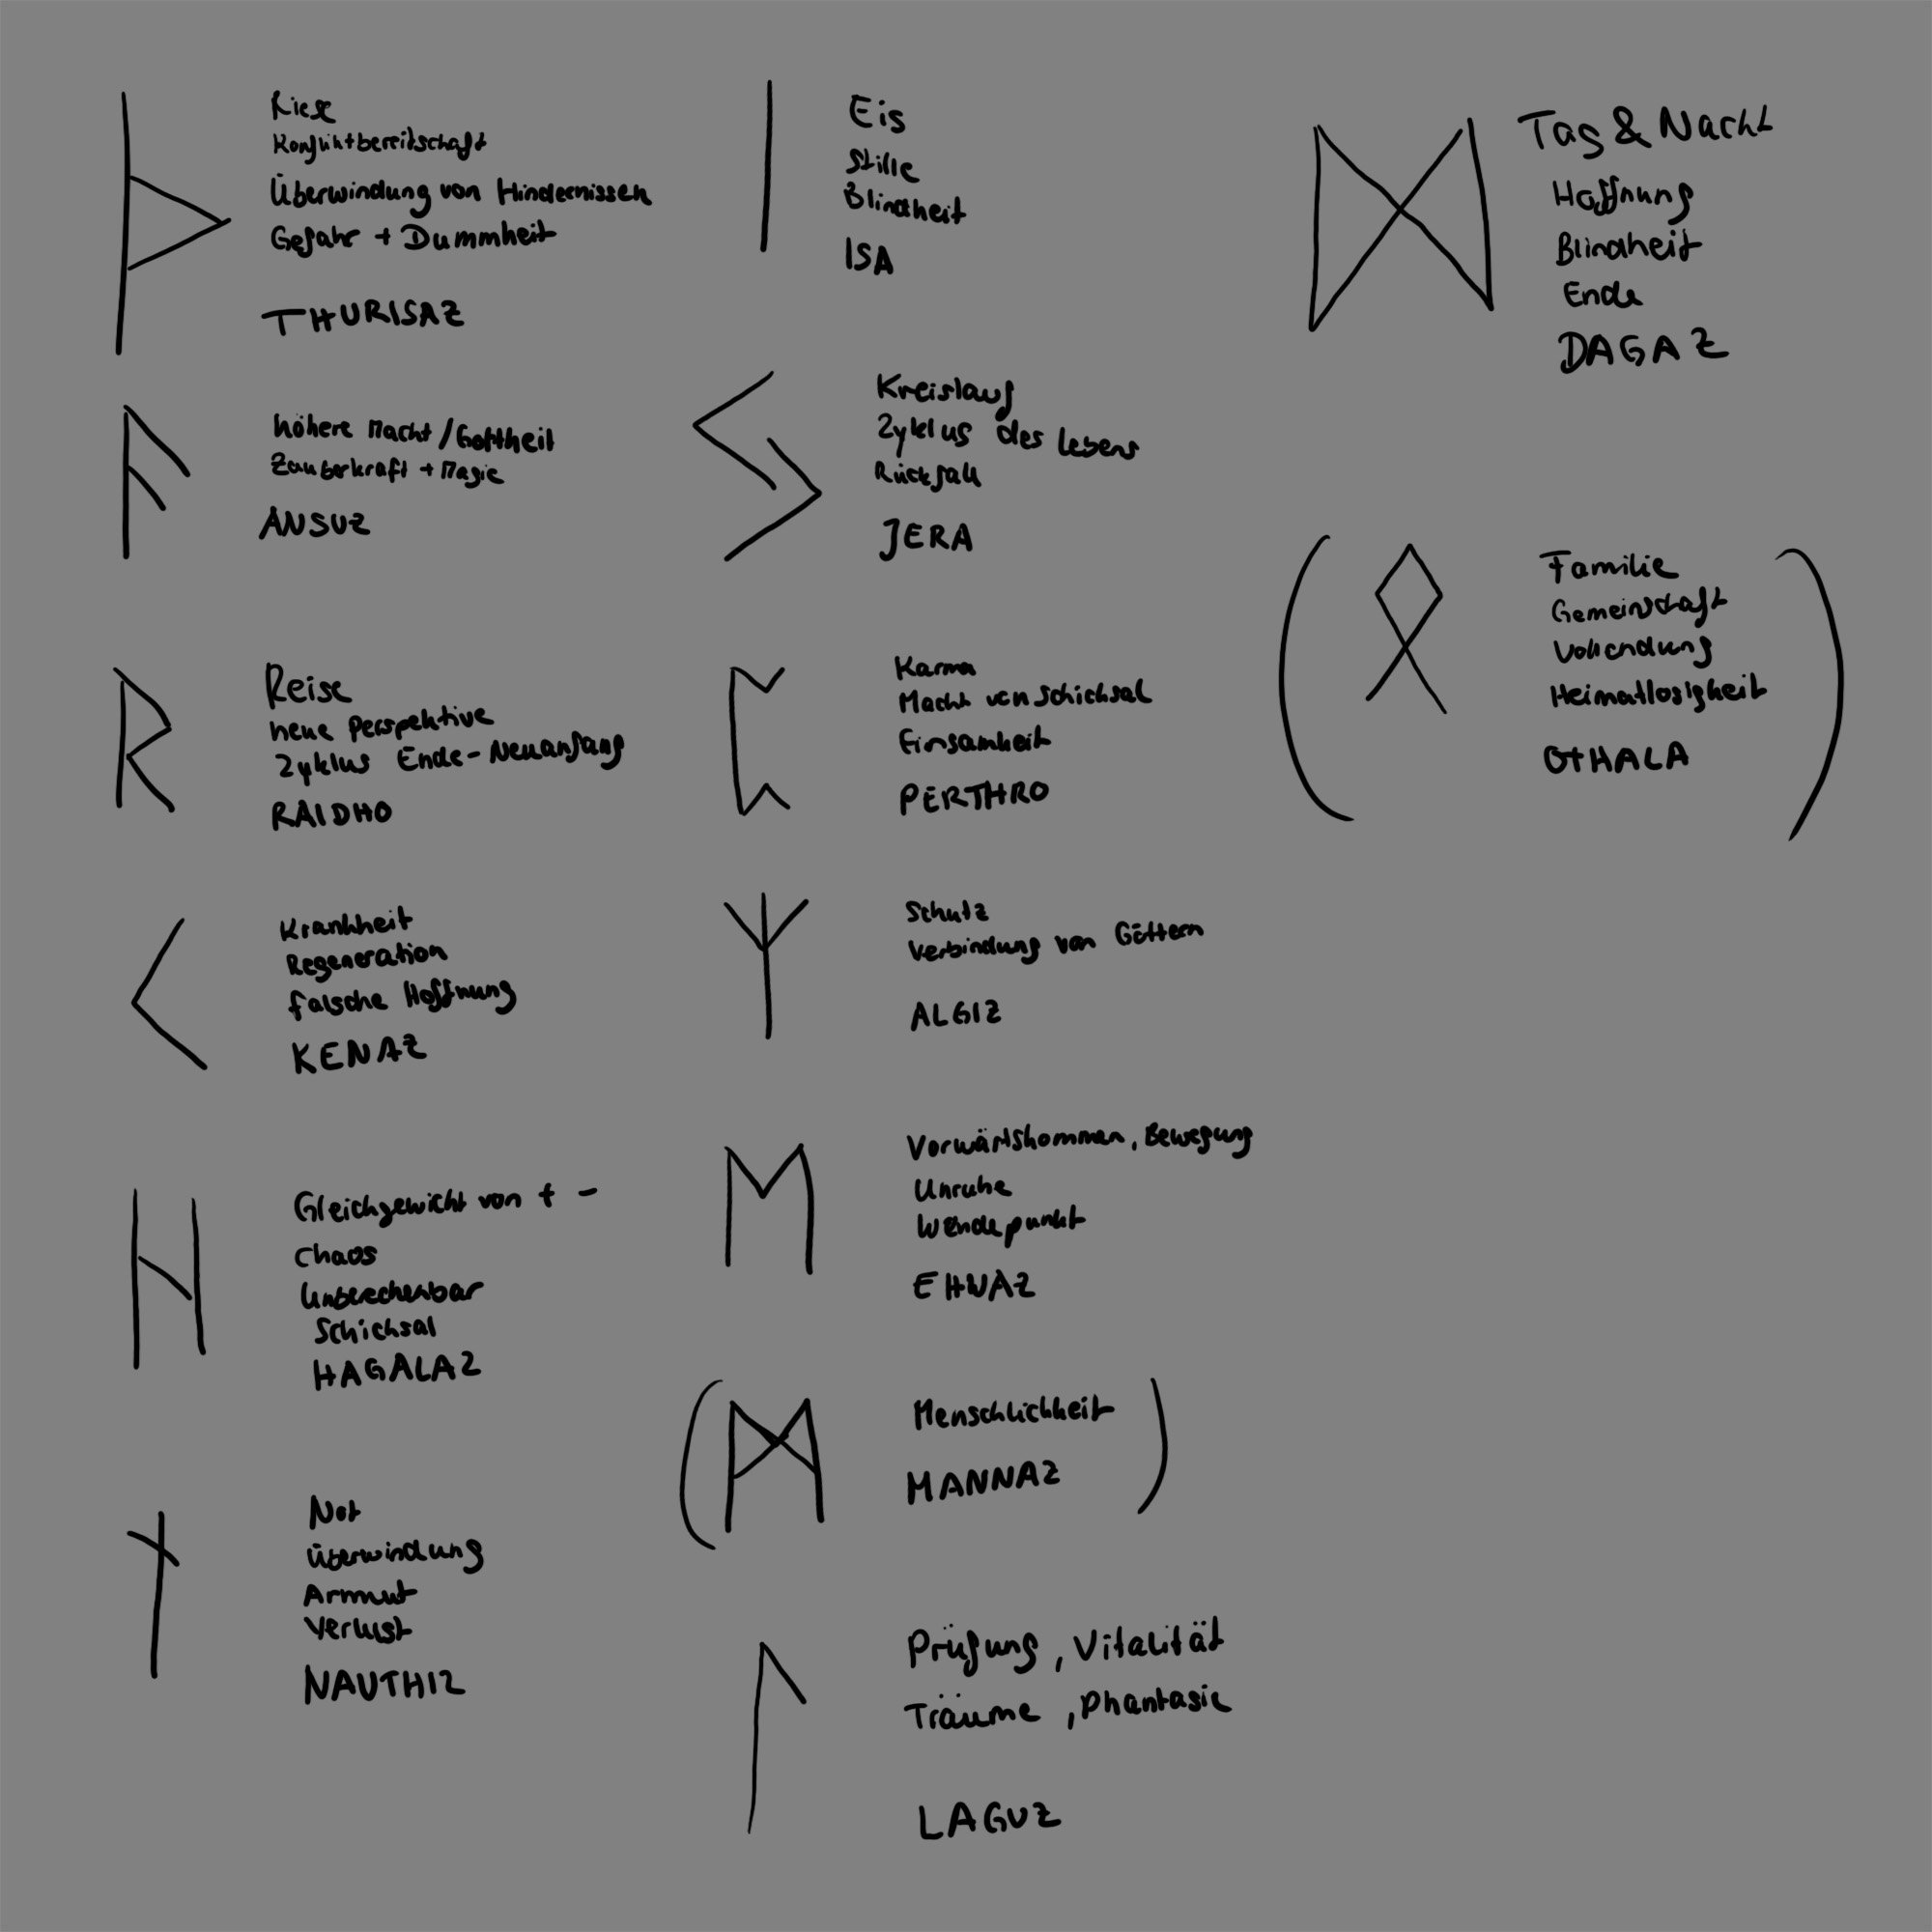 ᚦ
Riese
Konfliktbereitschaft
Überwindung von Hindernissen
Gefahr + Dummheit
THURISAZ
ᚨ
höhere Macht/Gottheit
Zauberkraft + Magie
ANSUZ
ᚱ
Reise
neue Perspektive
Zyklus Ende-Neuanfang
RAIDHO
ᚲ
Krankheit
Regeneration
falsche Hoffnung
KENAZ
ᚺ
Gleichgewicht von + -
Chaos
Unberechenbar
Schicksal
HAGALAZ
ᚾ
Not
Überwindung
Armut
Verlust
NAUTHIZ
ᛁ
Eis
Stille
Blindheit
ISA
ᛃ
Kreislauf
Zyklus des Lebens
Rückfall
JERA
ᛈ
Karma
Macht von Schicksal
Einsamkeit
PERTHRO
ᛉ
Schutz
Verbindung von Göttern
ALGIZ
ᛖ
Vorwärtskommen, Bewegung
Unruhe
Wendepunkt
EHWAZ
(ᛗ
Menschlichkeit
MANNAZ)
ᛚ
Prüfung, Vitalität
Träume, Phantasie
LAGUZ
ᛞ
Tag & Nacht
Hoffnung
Blindheit
Ende
DAGAZ
(ᛟ
Familie
Gemeinschaft
Vollendung
Heimatlosigkeit
OTHALA)